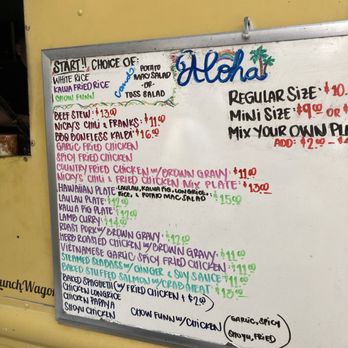 START!! CHOICE OF:
WHITE RICE
KALUA FRIED RICE
CHOW FUNN
Combo
POTATO
MAC SALAD
-OR-
TOSS SALAD
Aloha
REGULAR SIZE: $10.
MINI SIZE: $9.00 OR
MIX YOUR OWN PL
ADD: $2.00 -
BEEF STEW: $13.00
NICKY'S CHILI & FRANKS: $11.00
BBQ BONELESS KALBI: $16.00
GARLIC FRIED CHICKEN
SPICY FRIED CHICKEN
COUNTRY FRIED CHICKEN W/BROWN GRAVY: $11.00
NICKY'S CHILI & FRIED CHICKEN MIX PLATE: $13.00
HAWAIIAN PLATE: LAULAU, KALUA PIG, LONGRICE, RICE, & POTATO MAC SALAD $15.00
LAULAU PLATE: $12.00
KALUA PIG PLATE: $12.00
LAMB CURRY: $14.00
ROAST PORK W/BROWN GRAVY: $12.00
HERB ROASTED CHICKEN W/BROWN GRAVY: $11.00
VIETNAMESE GARLIC SPICY FRIED CHICKEN: $11.00
STEAMED SEABASS W/GINGER & SOY SAUCE: $11.00
BAKED STUFFED SALMON W/CRAB MEAT: $15.00
BAKED SPAGHETTI (W/ FRIED CHICKEN + $2.00)
CHICKEN LONGRICE
CHICKEN PAPAYA
SHOYU CHICKEN
CHOW FUNN W/CHICKEN (GARLIC, SPICY
SHOYU, FRIED)
unchWagon